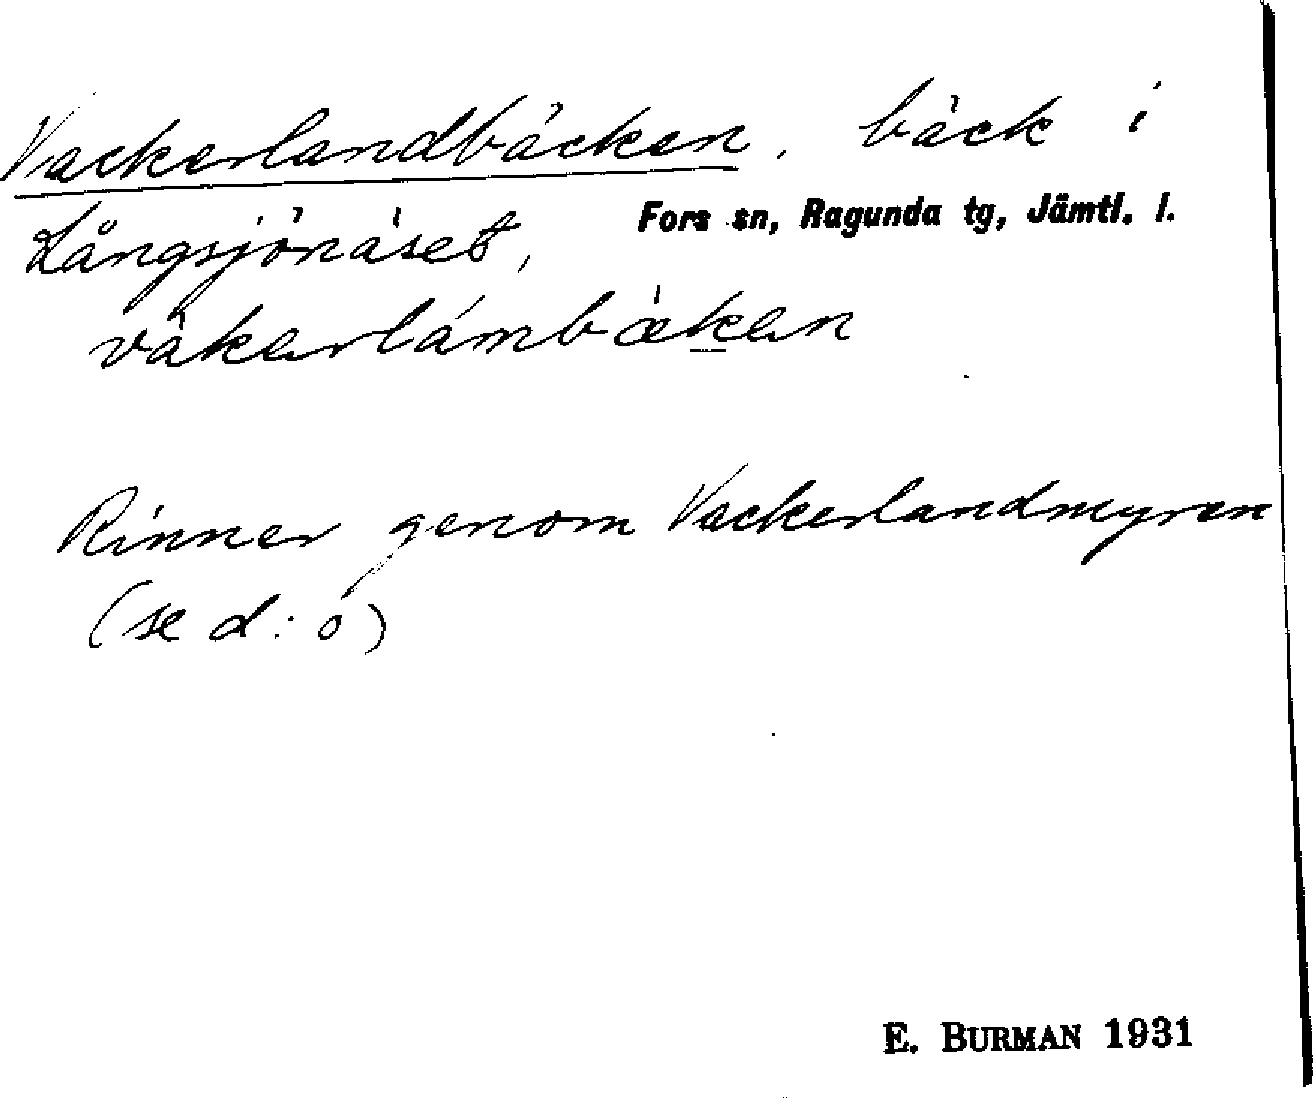 Vackerlandbäcken, bäck i
Långsjönäset, Fors sn, Ragunda tg, Jämtl. l.
våkerlámbæken
Rinner genom Vackerlandmyren
(se d:o)
E. BURMAN 1931